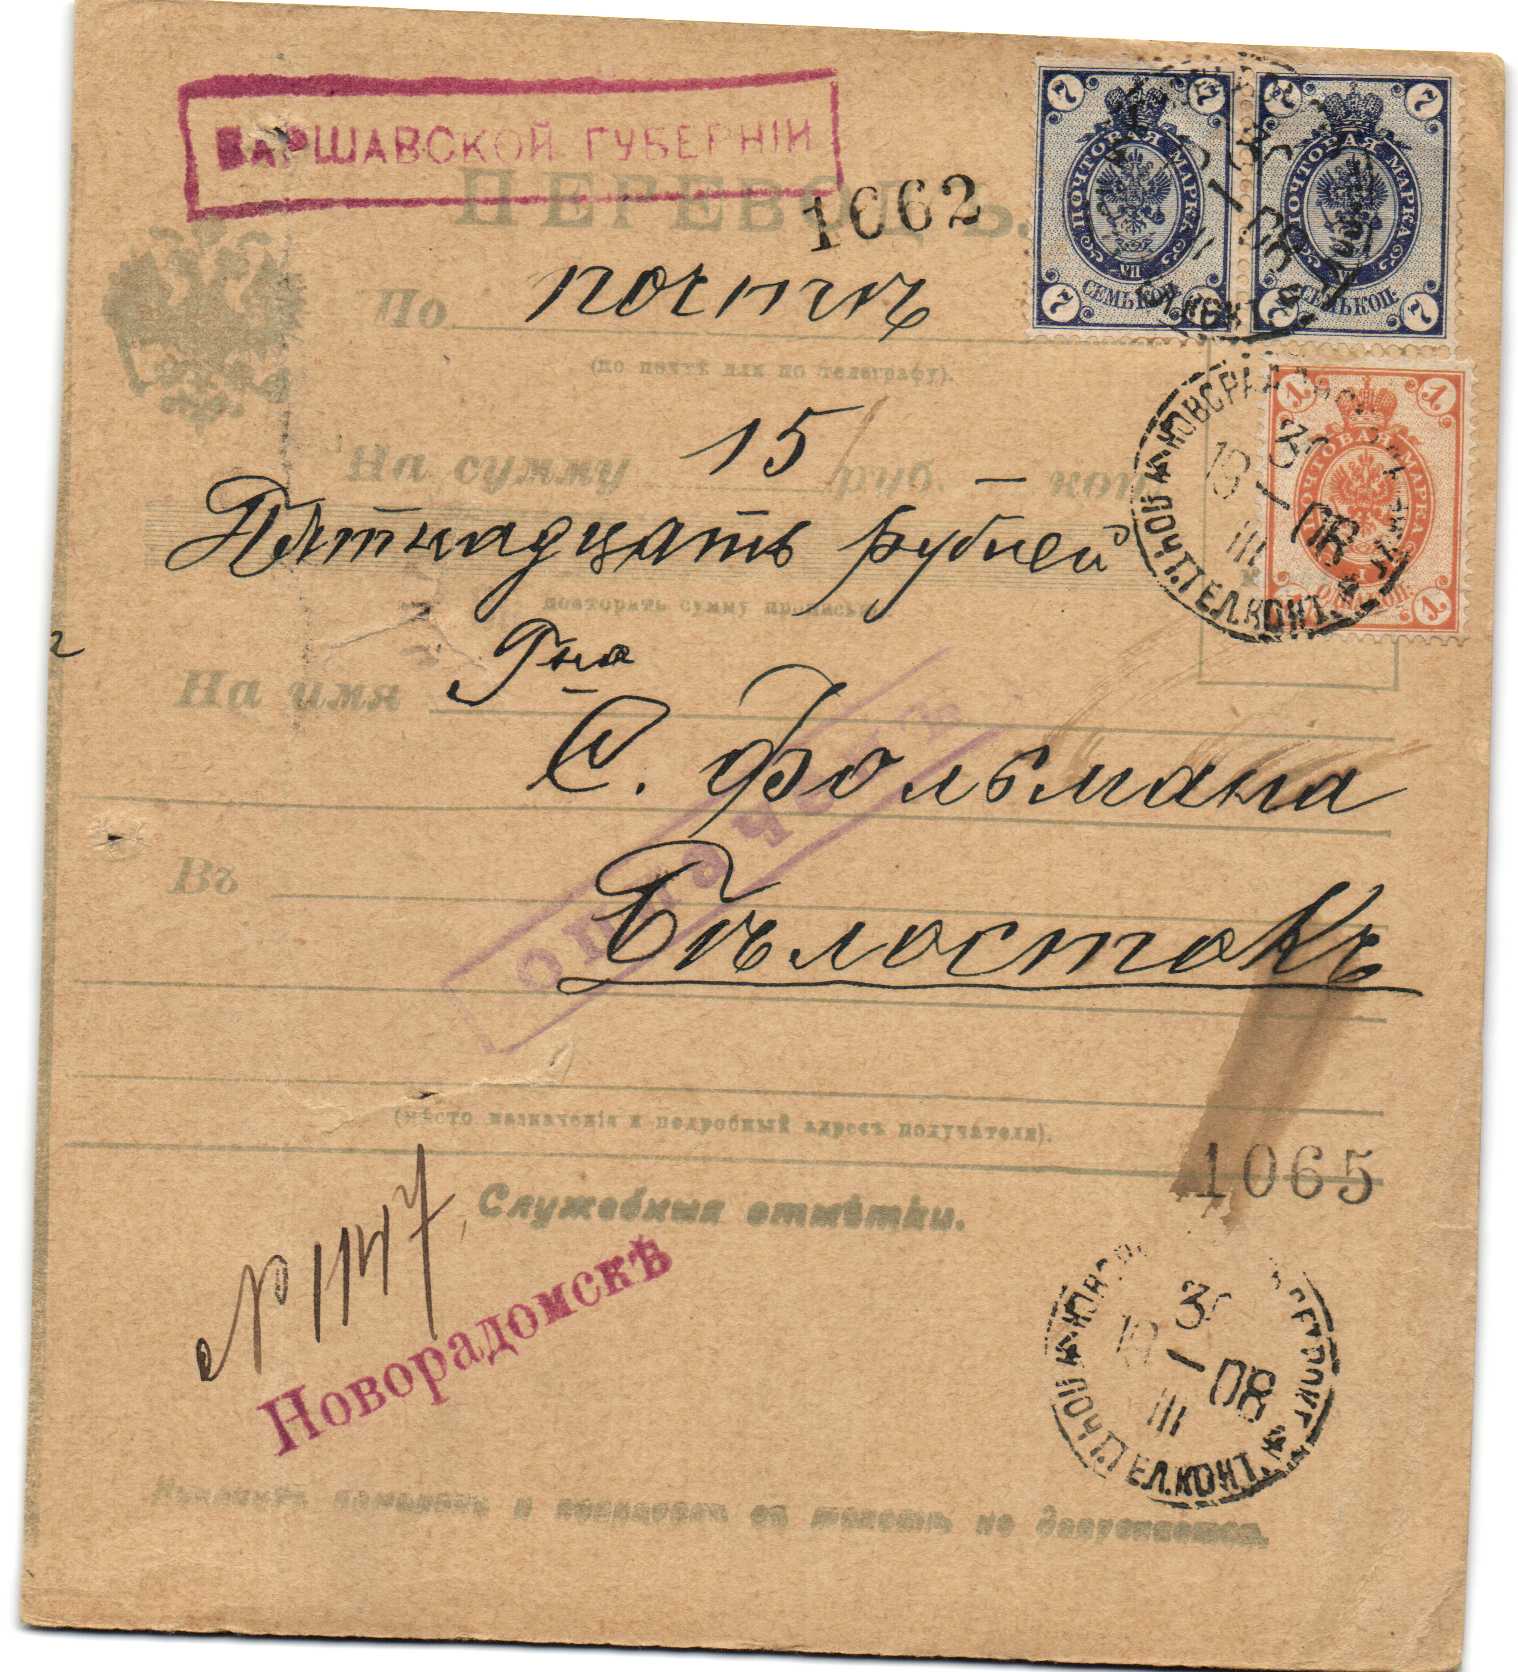 ВАРШАВСКОЙ ГУБЕРНІИ
ПЕРЕВОДЪ.
1062
7 7
ПОЧТОВАЯ МАРКА
VII
СЕМЬ КОП.
7 7
7 7
ПОЧТОВАЯ МАРКА
СЕМЬ КОП.
7 7
По почтѣ
(по почтѣ или по телеграфу).
На сумму 15 руб. — коп.
Пятнадцать рублей
повторить сумму прописью
1 1
ПОЧТОВАЯ МАРКА
1 1
30
19 – 08
III
ПОЧТ.ТЕЛ.КОНТ.
На имя Гна
С. Фольмана
Въ
Бѣлостокъ
(мѣсто назначенія и подробный адресъ получателя).
1065
Служебныя отмѣтки.
№ 1147
Новорадомскъ
30
19 – 08
III
ПОЧТ.ТЕЛ.КОНТ.